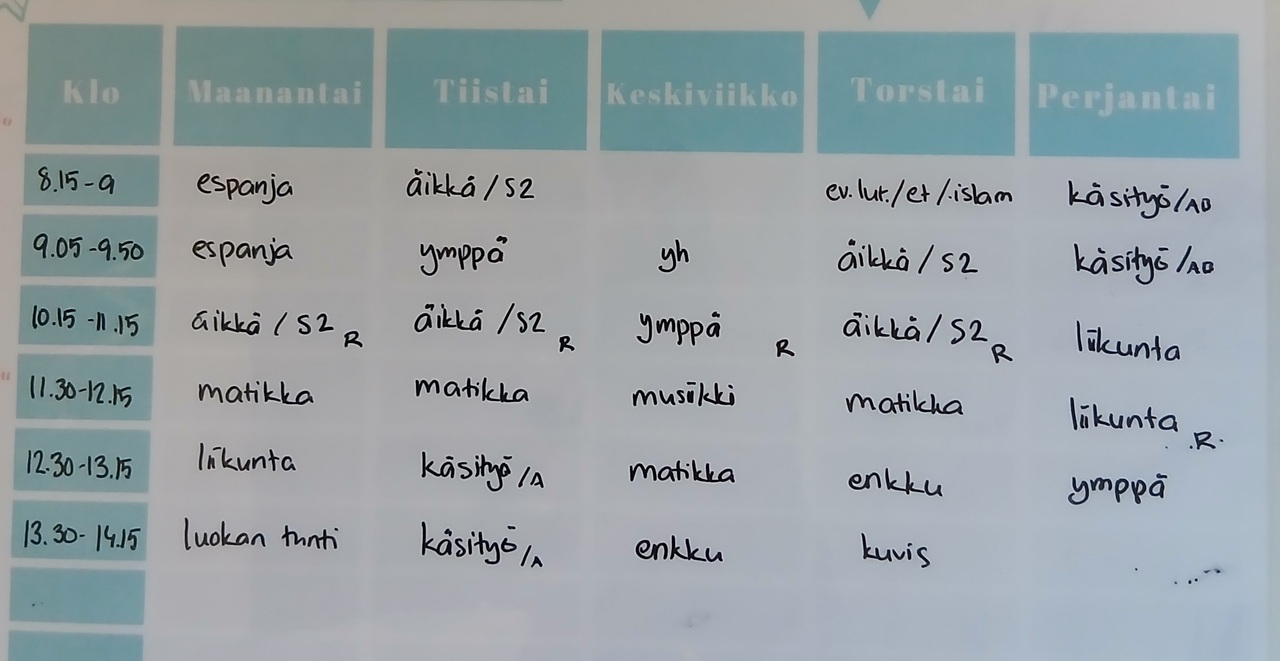 Klo Maanantai Tiistai Keskiviikko Torstai Perjantai
8.15-9 espanja äikkä / S2 ev.lut./et/islam käsityö/AB
9.05-9.50 espanja ymppä yh äikkä / S2 käsityö/AB
10.15-11.15 äikkä / S2 R äikkä / S2 R ymppä R äikkä / S2 R liikunta
11.30-12.15 matikka matikka musiikki matikka liikunta R
12.30-13.15 liikunta käsityö/A matikka enkku ymppä
13.30-14.15 luokan tunti käsityö/A enkku kuvis